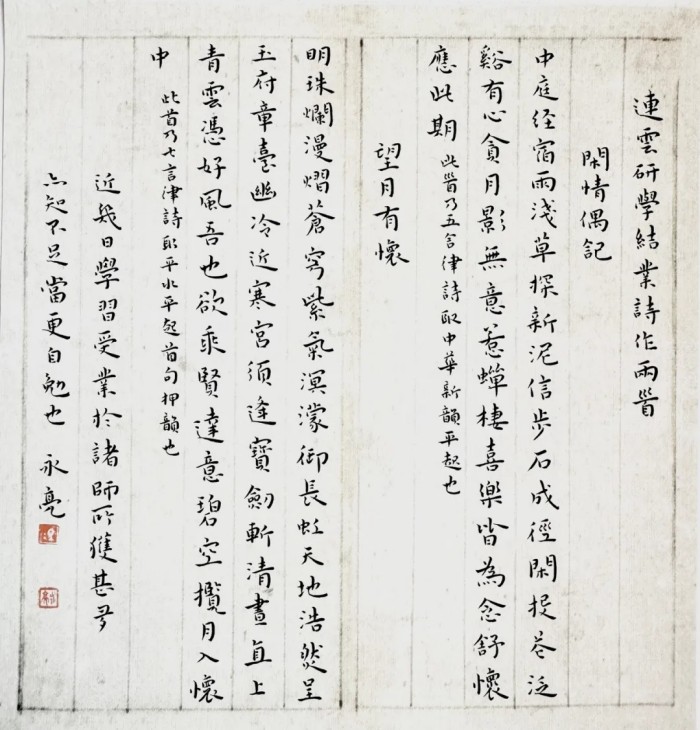 連雲研學結業詩作兩首
閑情偶記
中庭经宿雨淺草探新泥信步石成徑閑投花泛
谿有心貪月影無意惹蟬棲喜樂皆為念舒懷
應此期 此首乃五言律詩取中華新韻平起也
望月有懷
明珠爛漫熠蒼穹紫氣溟濛御長虹天地浩然呈
玉府章臺幽冷近寒宮須逢寶劍斬清晝直上
青雲憑好風吾也欲乘賢達意碧空攬月入懷
中 此首乃七言律詩取平水平起首句押韻也
近幾日學習受業於諸師所獲甚多
亦知不足當更自勉也 永亮